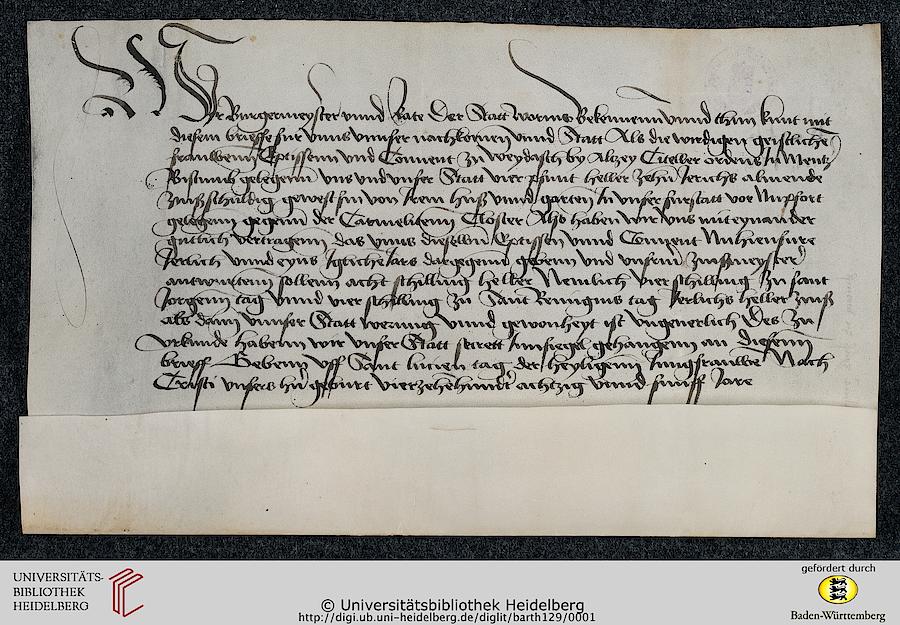 Wir Burgermeyster unnd Rate der Statt worms Bekennenn unnd thun kunt mit
diesem brieffe fur unns unnser nachkomen unnd Statt Als die wirdigen geistliche
frauwenn Eptissenn und Convent zu weydasch by Altzey Citelher ordens In Mentz
Bistumb gelegenn uns und unser Statt vier pfunt heller zehn Jerichs almende
zinß schuldig gewest sin von Irem huß unnd garten In unser furstatt vor
gelegenn gegenn der Carmelitenn Closter Also haben wir uns mit eynander
gutlich vertragenn das unns dieselbenn Eptissen unnd Convent Nuhienfure
Jerlich unnd eyns Igliche Jars dargegenn gebenn und unsern zinßmeyster
antwurtenn sollenn acht schilling heller Nemlich vier schilling zu sant
Jorgenn tag unnd vier schilling zu Sant Remigius tag Jerlichs heller zinß
als dann unnser Statt werung unnd gewonheyt ist ungeverlich Des zu
urkunde habenn wir unser Statt secrett Innsiegel gehangenn an diesenn
brieff Gebenn uff Sant lucien tag der heyligenn Jungfrauwe Nach
Cristi unsers hern geburt vierzehenhundert achtzig unnd funff Jare
UNIVERSITÄTS-
BIBLIOTHEK
HEIDELBERG
© Universitätsbibliothek Heidelberg
http://digi.ub.uni-heidelberg.de/diglit/barth129/0001
gefördert durch
Baden-Württemberg